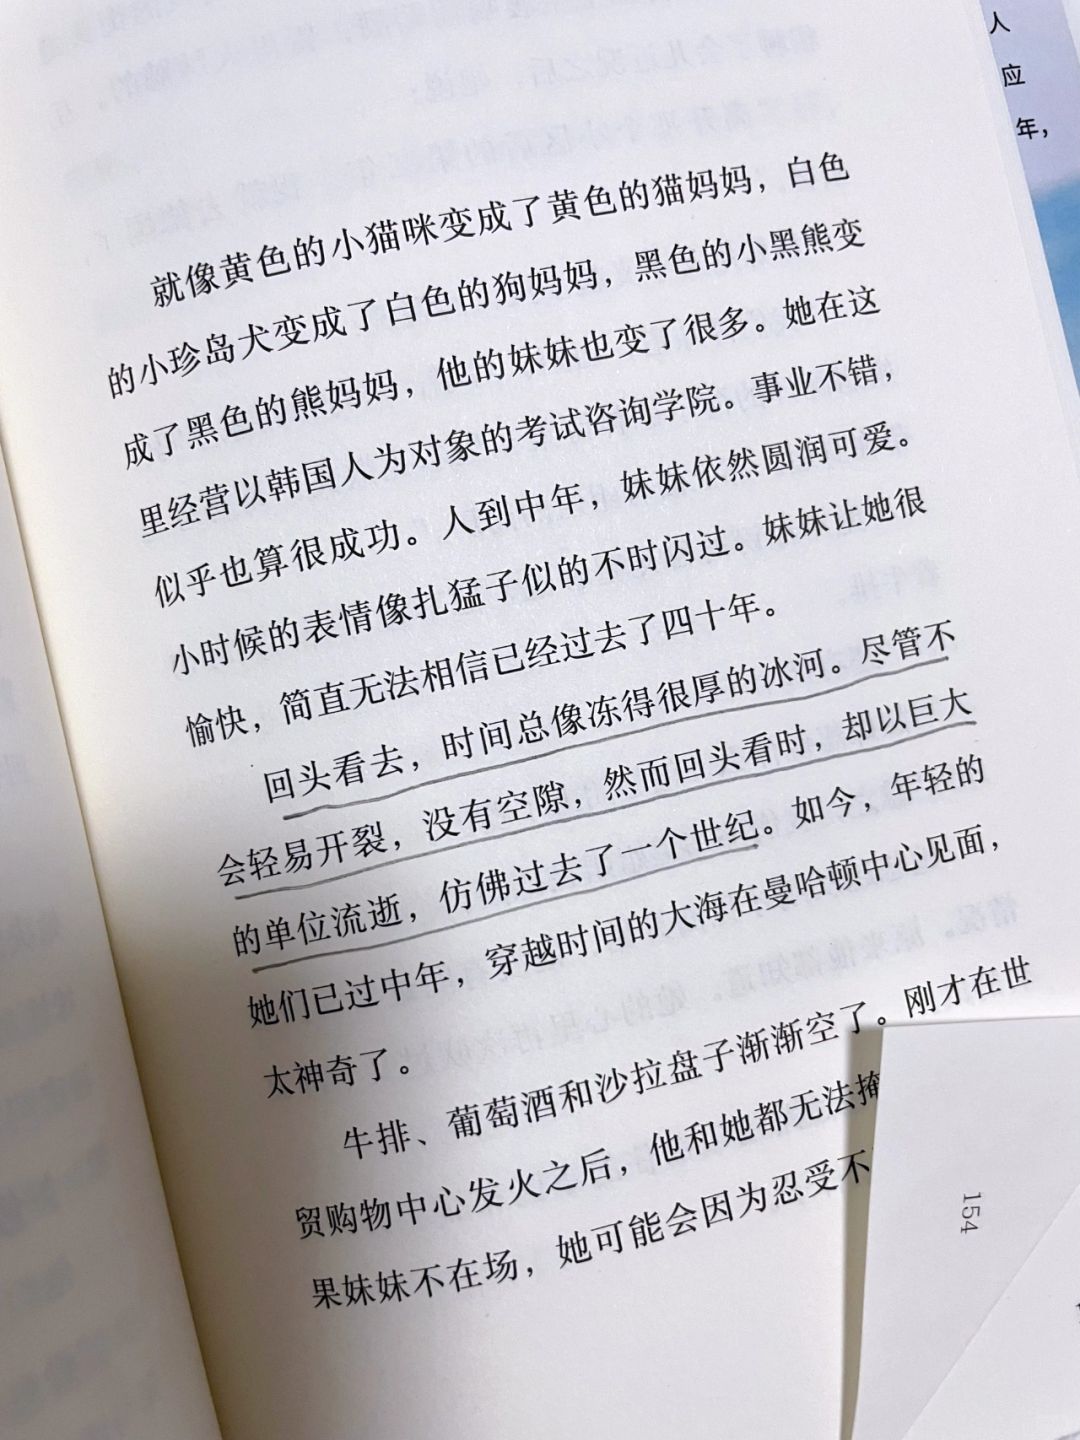 就像黄色的小猫咪变成了黄色的猫妈妈，白色
的小珍岛犬变成了白色的狗妈妈，黑色的小黑熊变
成了黑色的熊妈妈，他的妹妹也变了很多。她在这
里经营以韩国人为对象的考试咨询学院。事业不错，
似乎也算很成功。人到中年，妹妹依然圆润可爱。
小时候的表情像扎猛子似的不时闪过。妹妹让她很
愉快，简直无法相信已经过去了四十年。
回头看去，时间总像冻得很厚的冰河。尽管不
会轻易开裂，没有空隙，然而回头看时，却以巨大
的单位流逝，仿佛过去了一个世纪。如今，年轻的
她们已过中年，穿越时间的大海在曼哈顿中心见面，
太神奇了。
牛排、葡萄酒和沙拉盘子渐渐空了。刚才在世
贸购物中心发火之后，他和她都无法掩
果妹妹不在场，她可能会因为忍受不
154
人
应
年，